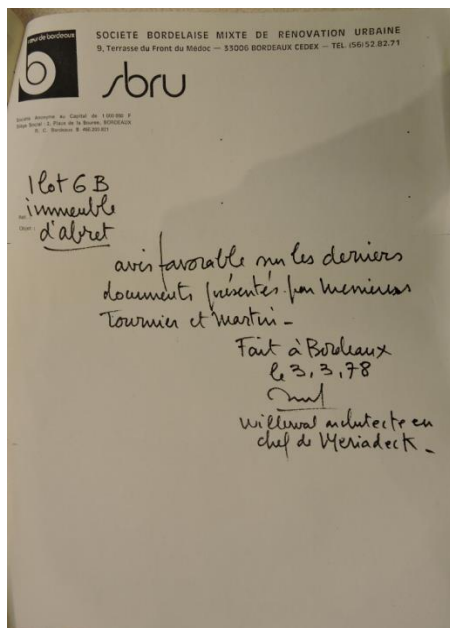 SOCIETE BORDELAISE MIXTE DE RENOVATION URBAINE
9, Terrasse du Front du Médoc — 33006 BORDEAUX CEDEX — TEL. (56) 52.82.71
de bordeaux
b
sbru
Société Anonyme au Capital de 1 000 000 F
Siège Social : 2, Place de la Bourse, BORDEAUX
R. C. Bordeaux B
Ilot 6 B
immeuble
d'albret
avis favorable sur les derniers
documents présentés par Messieurs
Tournier et Martin -
Fait à Bordeaux
le 3, 3, 78
Willerval architecte en
chef de Meriadeck -